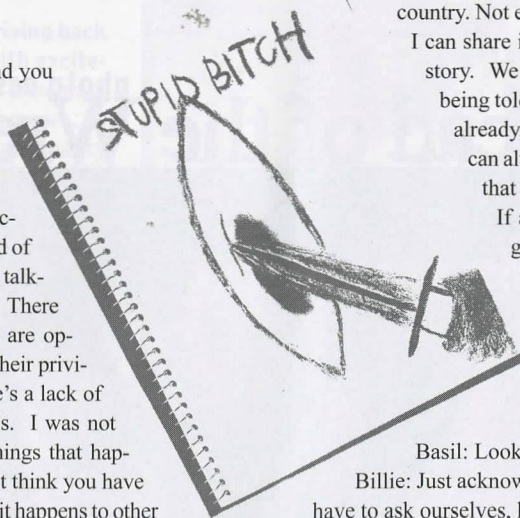 STUPID BITCH
d you
c-
d of
talk-
There
are op-
heir privi-
e's a lack of
s. I was not
ings that hap-
t think you have
it happens to other
country. Not e
I can share i
story. We
being tol
already
can al
that
If a
g
Basil: Look
Billie: Just acknow
have to ask ourselves,